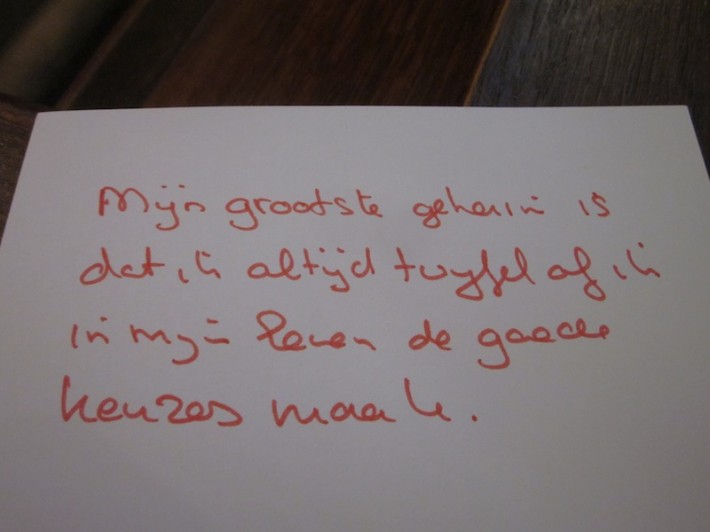 Mijn grootste geheim is
dat ik altijd twijfel of ik
in mijn leven de goede
keuzes maak.